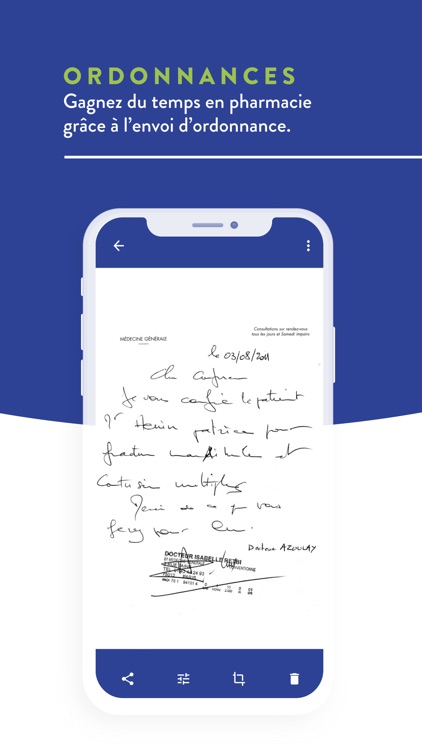 ORDONNANCES
Gagnez du temps en pharmacie
grâce à l'envoi d'ordonnance.
Consultations sur rendez-vous
tous les jours et Samedi impairs
MÉDECINE GÉNÉRALE
le 03/08/2011
Cher Confrère
Je vous confie le patient
Mr Henin patrice pour
fracture mandibule et
Contusion multiples
Merci de ce que vous
ferez pour lui.
Docteur AZOULAY
DOCTEUR ISABELLE